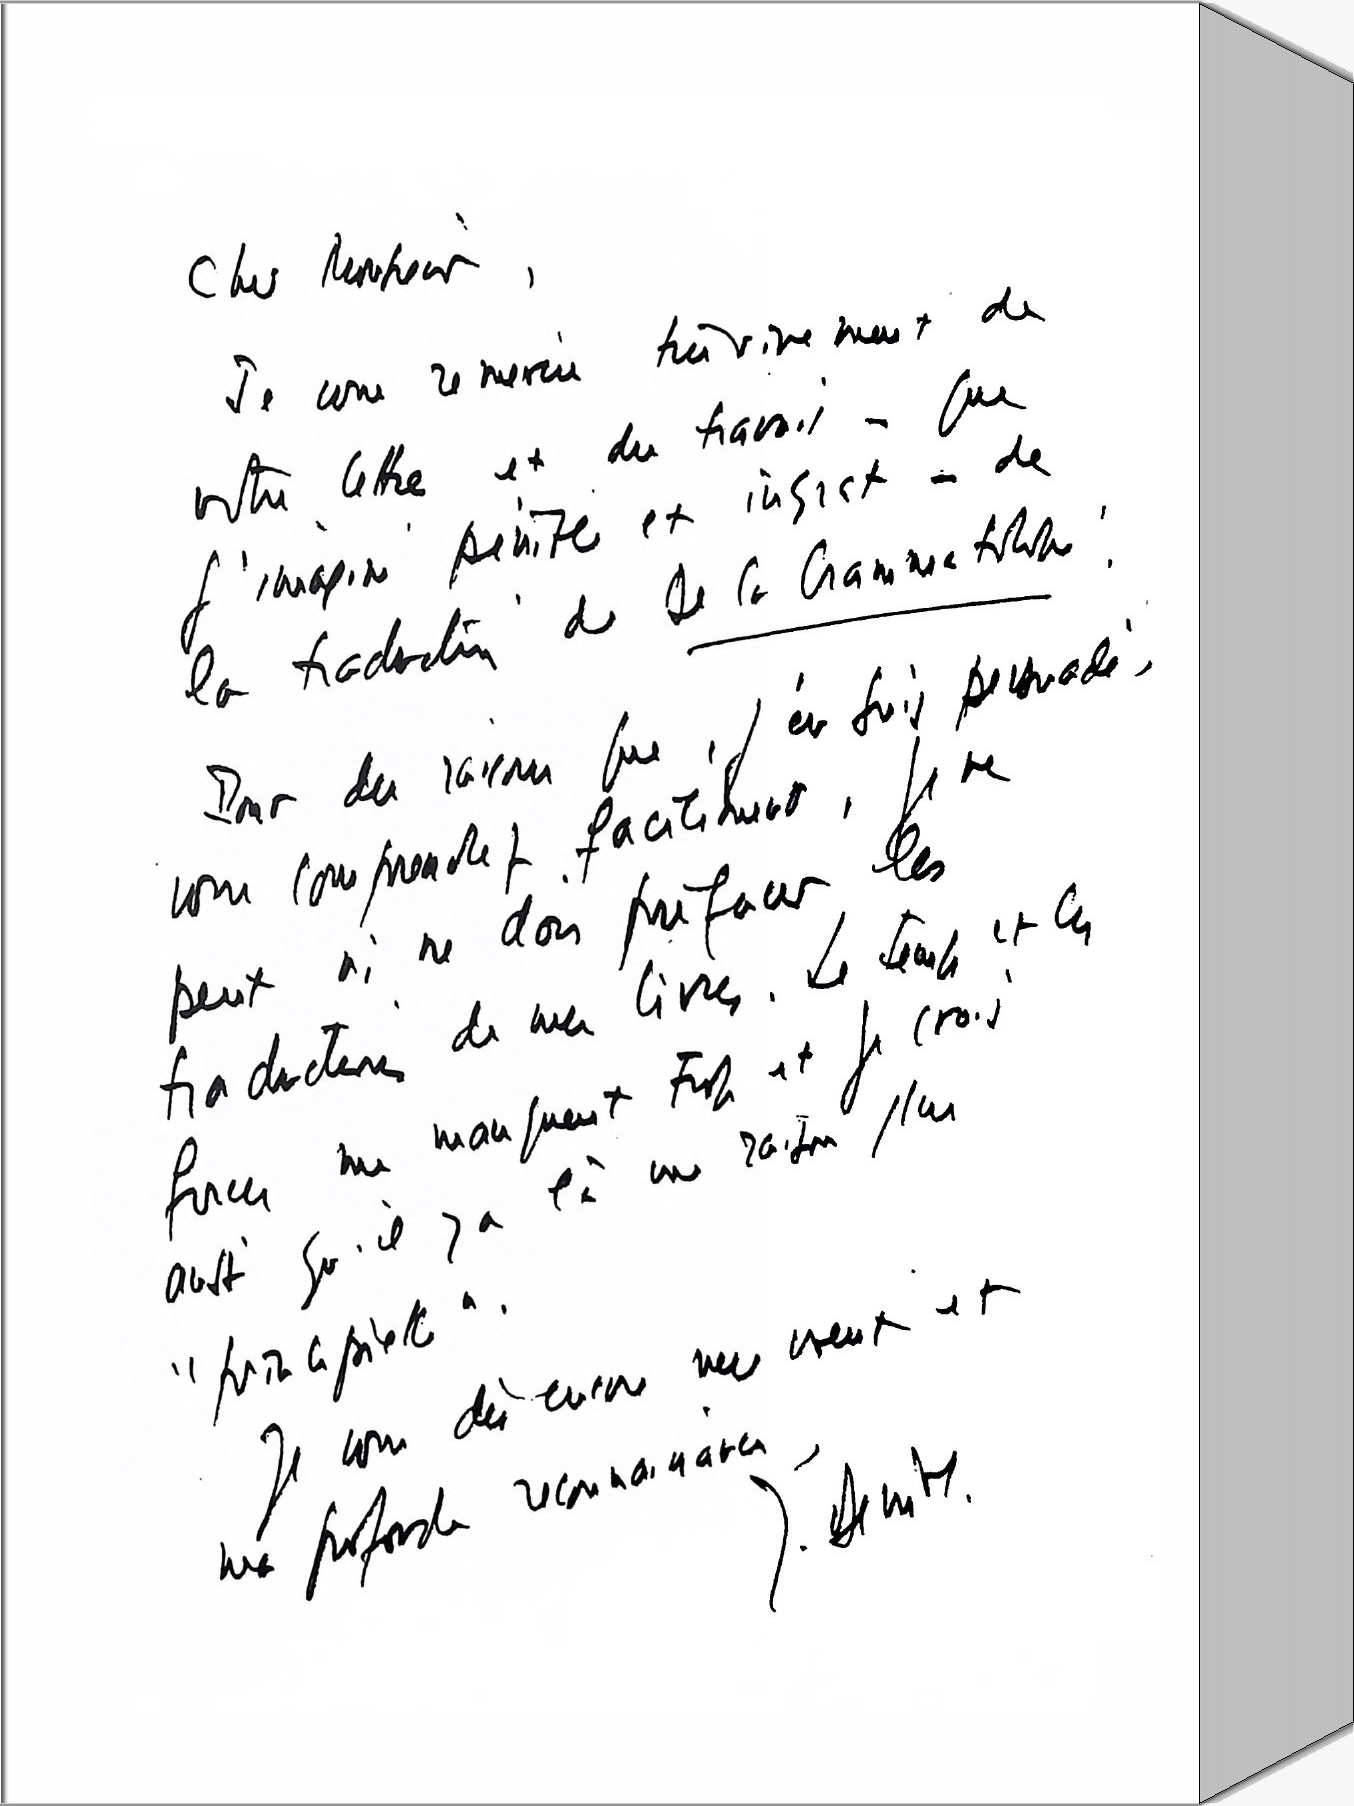 Cher Monsieur,
Je vous remercie très vivement de
votre lettre et du travail – que
j'imagine pénible et ingrat – de
la traduction de De la Grammatologie.
Pour des raisons que, j'en suis persuadé,
vous comprendrez facilement, je ne
peux ni ne dois préfacer les
traductions de mes livres. Le temps et les
forces me manquent et je crois
aussi qu'il y a là une raison plus
"principielle".
Je vous dis encore mes voeux et
ma profonde reconnaissance,
J. Derrida.